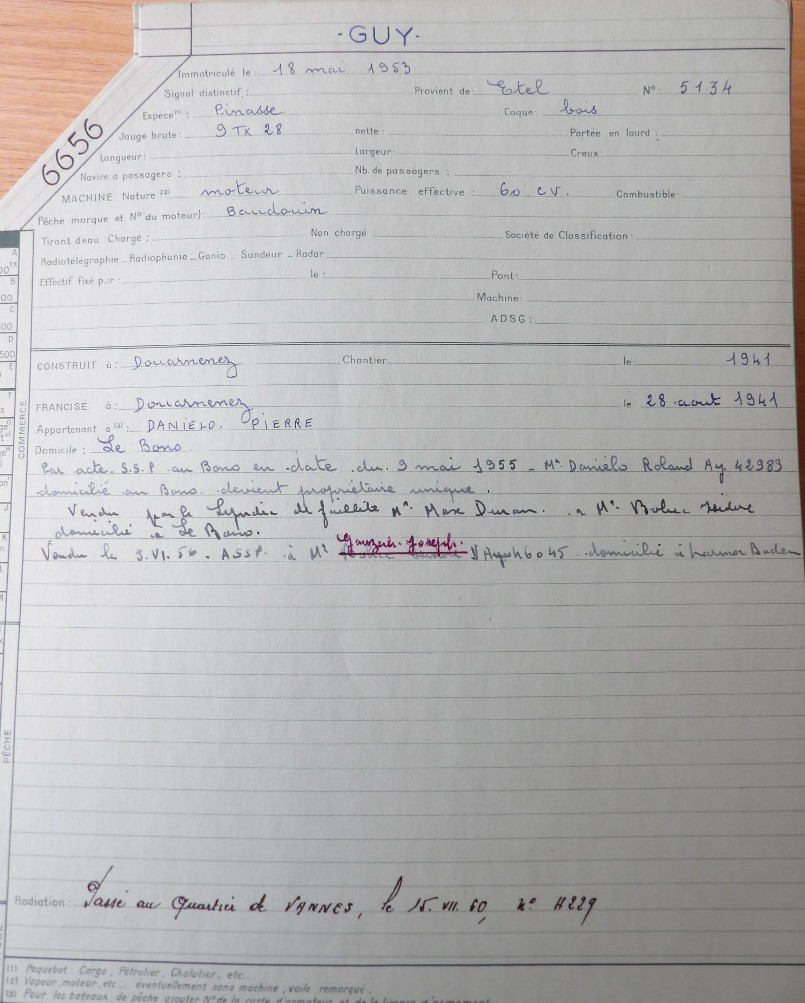 - GUY -
6656
Immatriculé le : 18 mai 1953
Signal distinctif : Provient de : Etel N° 5134
Espèce (1) : Pinasse Coque : bois
Jauge brute : 9 TX 28 nette : Portée en lourd :
Longueur : Largeur : Creux :
Navire à passagers : Nb. de passagers :
MACHINE Nature (2) moteur Puissance effective : 60 CV. Combustible :
Pêche marque et N° du moteur) : Baudouin
Tirant d'eau Chargé : Non chargé Société de Classification :
Radiotélégraphie - Radiophonie - Gonio - Sondeur - Radar
Effectif fixé par : le : Pont :
Machine :
ADSG :
CONSTRUIT à : Douarnenez Chantier le 1941
FRANCISÉ à : Douarnenez le 28 aout 1941
Appartenant à (3) : DANIELO. PIERRE
Domicile : Le Bono
Par acte S.S.P au Bono en date du 9 mai 1955 - Mr Danielo Roland Ay. 42383
domicilié au Bono. devient propriétaire unique.
Vendu par le Syndic de faillite Mr. Marc Duran. à Mr.
domicilié à Le Bono.
Joseph.
Vendu le 3.VI.56. A.S.S.P. à Mr 6045 domicilié à Larmor Baden
COMMERCE
PÊCHE
Radiation : Passé au Quartier de VANNES, le 15.VII.60, n° H229
(1) Paquebot Cargo, Pétrolier, Chalutier, etc...
(2) Vapeur, moteur, etc.. éventuellement sans machine, voile remorqué.
(3) Pour les bateaux de pêche ajouter N° de la carte d'armateur et de la licence d'armement